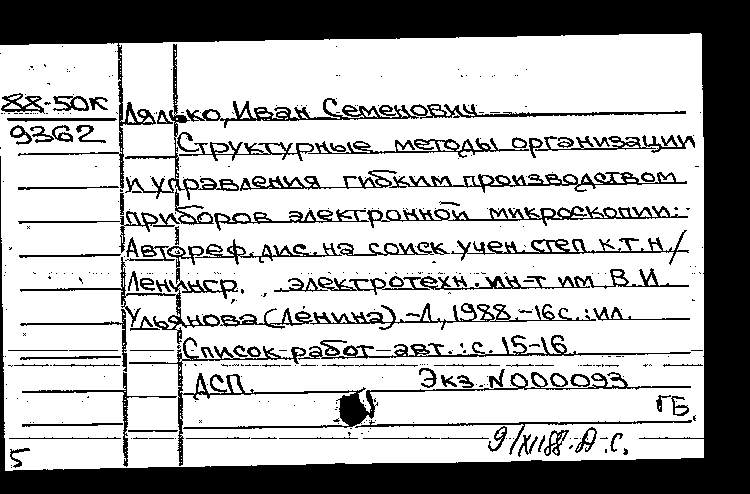 88-50к Лялько, Иван Семенович
9362
Структурные методы организации
и управления гибким производством
приборов электронной микроскопии:
Автореф. дис. на соиск. учен. степ. к.т.н./
Ленингр. электротехн. ин-т им В.И.
Ульянова (Ленина). -Л., 1988. -16с.: ил.
Список работ авт.: с. 15-16
ДСП. Экз. N000093
ГБ.
9/XII88. А.С.
5